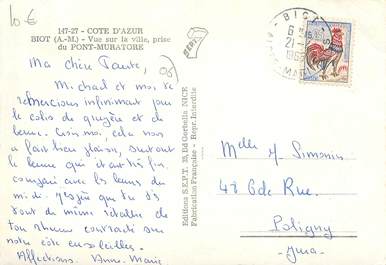 10 €
147-27 - COTE D'AZUR
BIOT (A.-M.) - Vue sur la ville, prise
du PONT-MURATORE
06
Ma chère Tante,
Michael et moi te
remercions infiniment pour
le colis de gruyère et de
beurre. Crois-moi, cela nous
a fait bien plaisir, surtout
le beurre qui était très fin
comparé avec les beurres du
midi. J'espère que tu es
tout de même rétablie de
ton rhume contracté sur
notre côte ensoleillée.
Affections. Anne-Marie
Editions S.E.P.T. 35, Bd Gorbella NICE
Fabrication Française - Repr. Interdite
BIOT
21-
Melle M. Simonin
48 Gde Rue.
Poligny
Jura